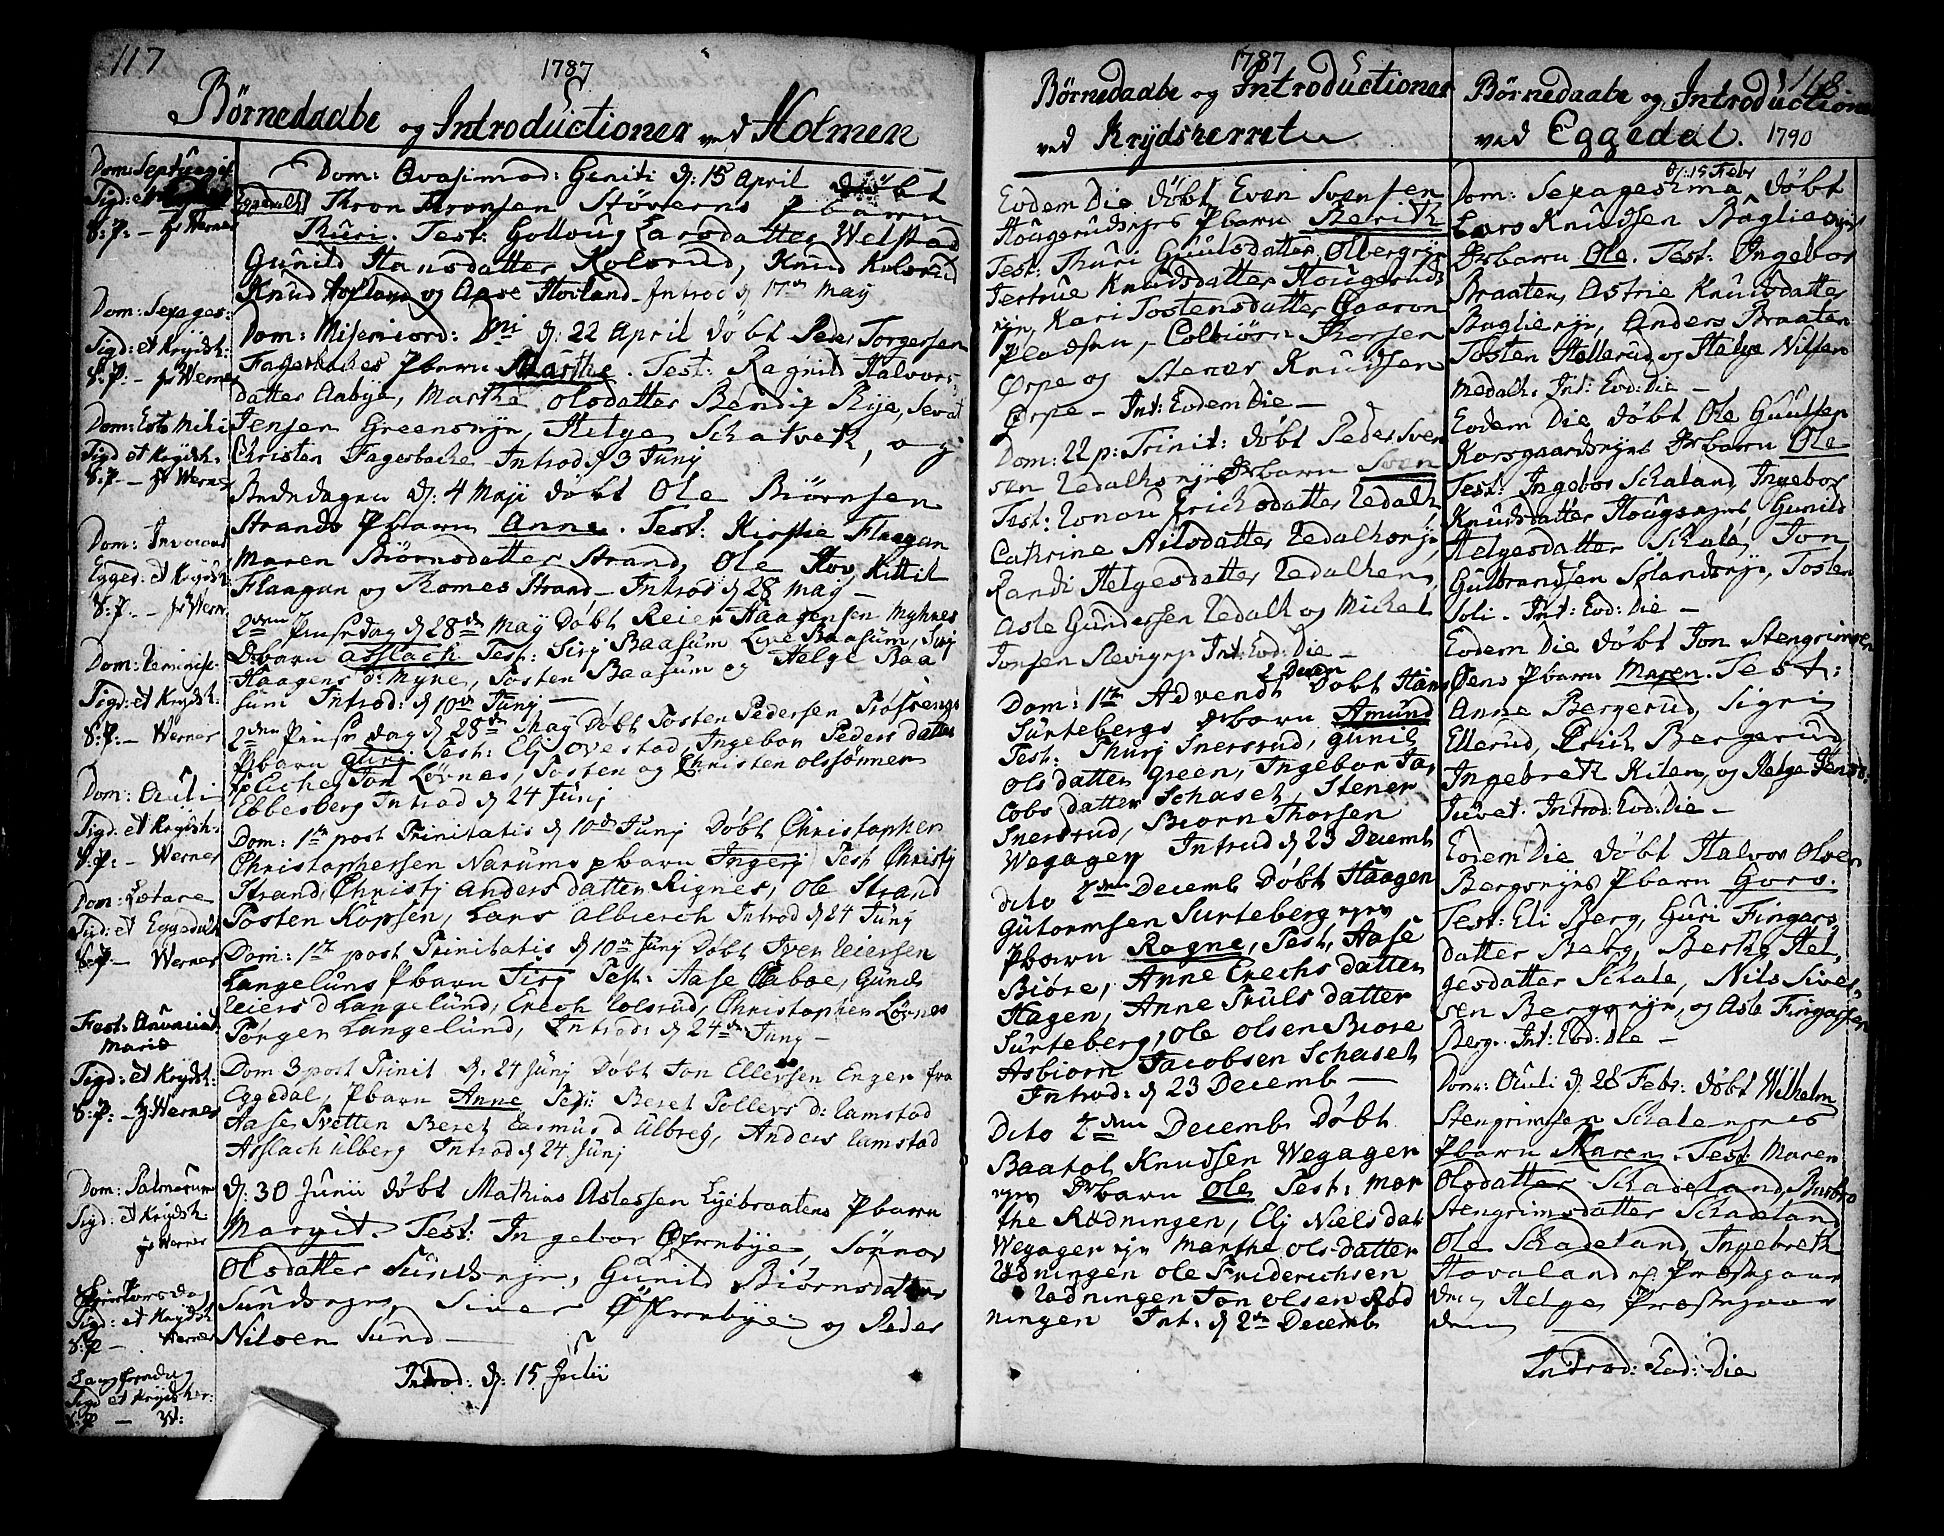 117
1787
Børnedaabe og Introductioner ved Holmen
Dom: Septuages:
Sigd: et
S: P: – hr Werner
Dom: Sexages:
Sigd: et Krydsh:
S: P: – hr Werner
Dom: Esto Mihi
Sigd et Krydsh.
S: P. – hr Werner
Dom: Invocavit
Egged: et Krydsh
S: P. – hr Werner
Dom: Reminisc:
Sigd: et Krydsh:
S: P: – Werner
Dom: Oculi
Sigd: et Krydsh.
S: P: – Werner
Dom: Lætare
Sigd: et Eggedahl
S: P – Werner
Fest: Anunciat:
Mariæ
Sigd: et Krydsh:
S: P: – hr Werner
Dom: Palmarum
Sigd: et Krydsh.
hr Werner
Skiertorsdag
Sigd: et Krydsh
S: P – Werner
Langfredag
Sigd et Krydsher:
S: P – W:
Dom: Qvasimod: Geniti d: 15 April døbt
Eggedahl Thron Thronsen Støverns Pbarn
Thuri. Test: Golloug Larsdatter Welstad
Gunild Hansdatter Kolsrud, Knud Kolsrud
Knud Hofland og Aase Hovland – Introd d 17de May
Dom: Misericord: Dni d: 22 April døbt Peder Torgersen
Fagerbaches Pbarn Marthe. Test: Ragnild Halvors
datter Aabye, Marthe Olsdatter Bendig Rye, Sevat
Jensen Greensnyr, Helge Schatvet, og
Christen Fagerbache – Introd d 3 Junj
Bededagen d: 4 Maji døbt Ole Biørnsen
Strands Pbarn Anne. Test: Kirstie Flaagan
Maren Biørnsdatter Strand, Ole Hov, Kittil
Flaagan og Romes Strand – Introd d 28 May –
2den Pinsedag d 28de May Døbt Reier Haagensen Myhnes
Drbarn Asslach Test: Sirj Baasum Live Baasum, Sirj
Haagens d: Myne, Tosten Baasum og Helge Baa
sum Introd: d 10de Junj –
2den Pinse dag d 28de May Døbt Tosten Pedersen
Pbarn Gurj Test: Elj Ovestad, Ingebor Peders datter
Jon Løvnes, Tosten og Christen olssønner
Ebbesberg Introd d 24 Junj
Dom: 1ste post Trinitatis d 10de Junj Døbt Christopher
Christophersen Narums pbarn Ingerj Test Christj
Strand, Christj Anders datter Rignes, Ole Strand
Tosten Kopsen, Lars Albierch Introd d 24 Junj
Dom: 1ste post Trinitatis d 10de Junj Døbt Iver Reiersen
Langeluns Pbarn Sirj Test: Aase Gunil
Reiers d Langelund, Erech Colsrud, Christopher Løvnes
Jørgen Langelund, Introd: d 24de Junj –
Dom 3 post Trinit d: 24 Junj Døbt Jon Ellevsen Enger fra
Eggedal, Pbarn Anne Test: Beret Tollevs d: Ramstad
Aase Tvetten Beret Rasmus d Ulbreg, Anders Ramstad
Asslach Ulberg Introd d 24 Junj
d: 30 Junii døbt Mathias Aslessen Lyebraatens Pbarn
Margit. Test: Ingebor Ørnbye, Sønnov
Olsdatter Sundsnyr, Gunild Biørnsdatter
Sundsnyr, Siver Ørnbye og Peder
Nilsen Sund –
Introd: d: 15 Julii
1787
Børnedaabe og Introductioner
ved Krydsherret
Eodem Die døbt Even Svensen
Hougerudsnyes Pbarn Berith
Test: Thuri Guulsdatter Olbergnyr
Jertrue Knudsdatter Hougeruds
nyr, Kari Tostensdatter Gaaron
Pladsen, Colbiørn Thorsen
Ørpe og Stener Knudsen
Ørpe – Int: Eodem Die –
Dom: 22 p: Trinit: døbt Peder Sven
sen Redalhsnyr Drbarn Sven
Test: Ronou Erichsdatter Redalh
Cathrine Nilsdatter Redalhsnyr,
Randi Helgesdatter Redalhen,
Asle Gundersen Redalh og Michel
Jonsen Slevignyr Int: Eod: Die –
Dom: 1ste Advendt 2 Decem Døbt Hans
Surtebergs drbarn Amund
Test: Thurj Snersrud, gunil
ols datter Green, Ingebor Ja,
cobs datter Schaset, Stener
Snersrud, Biørn Thorsen
Wegager Introd d 23 Decemb
dito 2den Decemb Døbt Haagen
Gutormsen Surteberg nyes
Pbarn Ragne, Test, Aase
Biøre, Anne Erechs datter
Hagen, Anne Truls datter
Surteberg, Ole Olsen Biøre
Asbiørn Jacobsen Schaset
Introd: d 23 Decemb –
Dito 2den Decemb Døbt
Baatol Knudsen Wegager
nyes Drbarn Ole Test: Mar
the Rødningen, Elj Niels dat
Wegager nyr Marthe ols datter
Rødningen Ole Friderichsen
Rødningen Jon Olsen Rød
ningen Int: d 2den Decemb
118
Børnedaabe og Introductioner
ved Eggedal. 1790
d: 15 Febr
Dom: Sexagesima, døbt
Lars Knudsen Baglienyes
Drbarn Ole. Test: Ingebor
Braaten, Astrie Knudsdatter
Baglienyr, Anders Braaten
Tosten Hellerud og Helge Nilsen
Medalh. Int: Eod: Die –
Eodem Die døbt Ole Guulsen
Korsgaardsnyes Drbarn Ole
Test: Ingebor Schaland, Ingebor
Knudsdatter Hougsnyes, Gunild
Helgesdatter Schale, Jon
Gulbrandsen Solandsnyr, Tosten
Soli. Int: Eod: Die –
Eodem Die døbt Jon Stengrimsen
Øens Pbarn Maren. Test:
Anne Bergerud, Sigri
Ellerud, Erich Bergerud
Ingebreth Kilen, og Helge Jens:
Juvet. Introd: Eod: Die –
Eodem Die døbt Halvor Olsen
Bergsnyes Pbarn Goro.
Test: Eli Berg, Guri Fingars
datter Berg, Berthe Hel,
gesdatter Schale, Nils Siver,
sen Bergsnyr, og Asle Fingarsen
Berg. Int: Eod: Die –
Dom: Oculi d: 28 Febr: døbt Wilhelm
Stengrimsen Schale
Pbarn Maren. Test Maren
Olsdatter Schadeland, Barbro
Stengrimsdatter Schadeland
Ole Schadeland, Ingebreth
Hovaland og Præstegaar
den, Helge Præstegaar
den –
Introd: Eod: Die